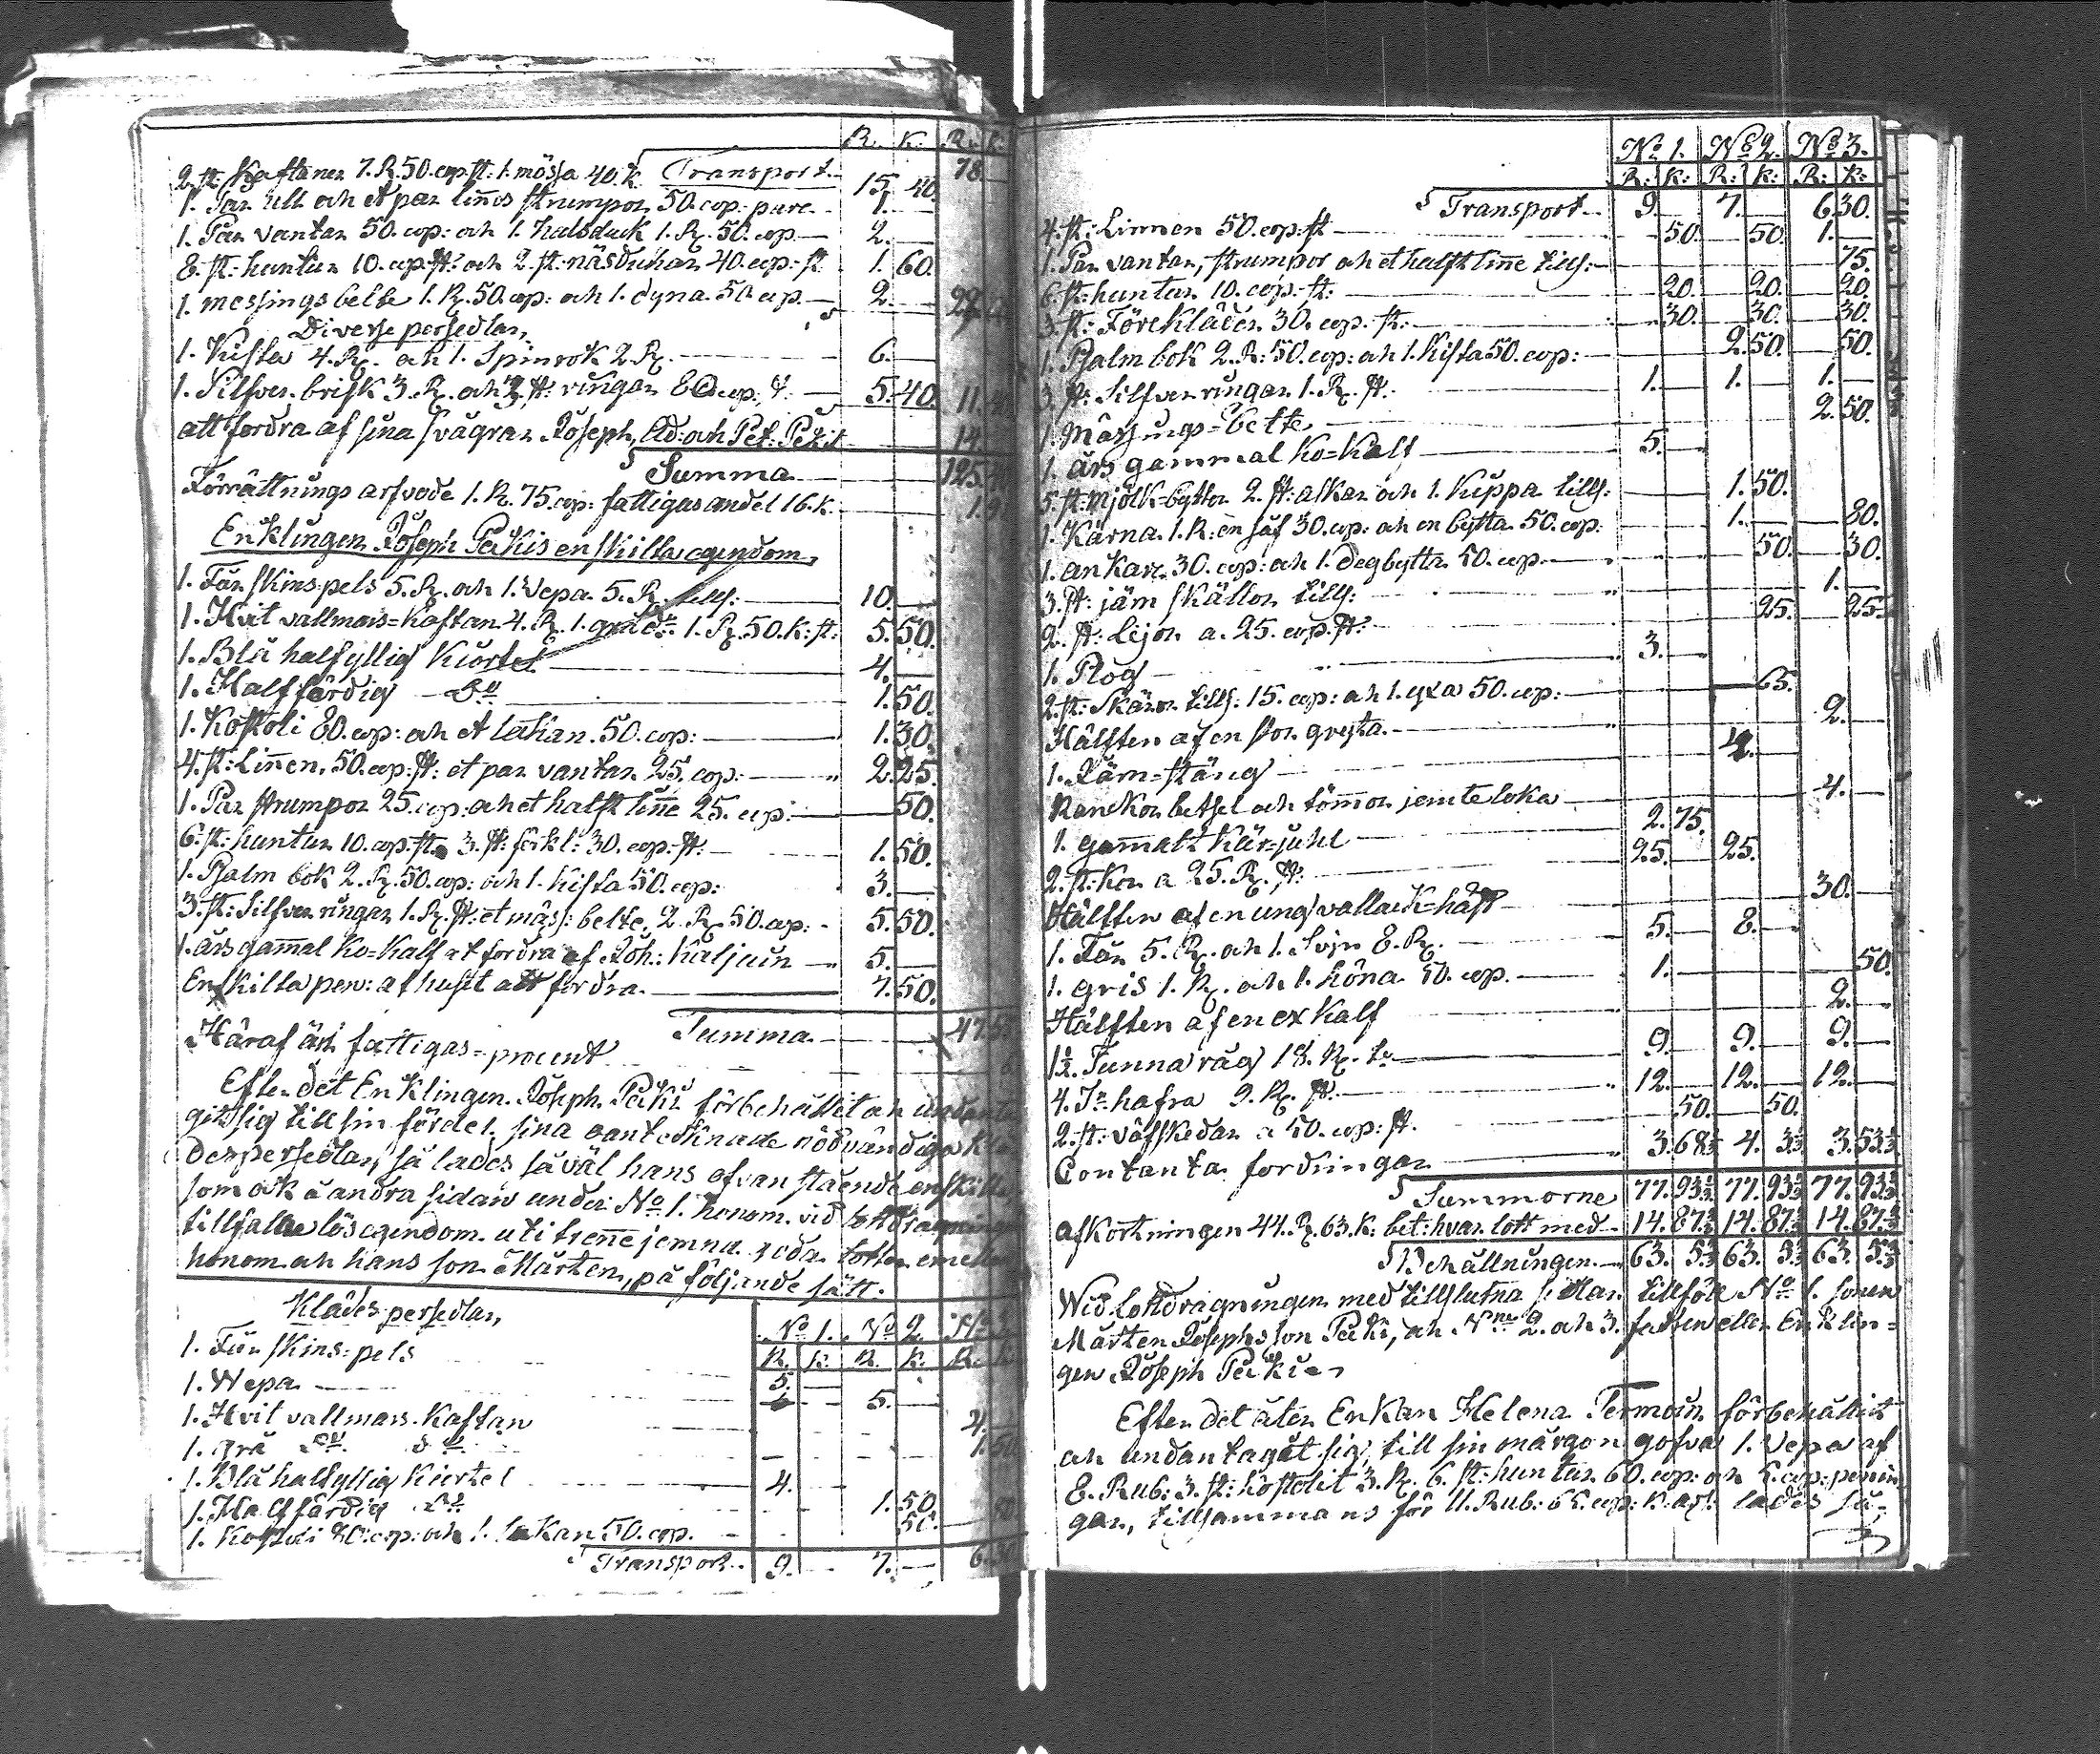 R. K. R. K.
Transport 78.
2. st: Kaftaner 7. R. 50. cop. st: 1. mössa 40. K. 15. 40.
1. Par ull och et par linnes strumpor 50. cop: paret 1.
1. Par vantar 50. cop: och 1. halsduk 1. R. 50. cop. 2.
8. st: huntur 10. cop. st: och 2. st: näsdukar 40. cop: st 1. 60.
1. messings belte 1. R. 50. cop: och 1. dyna 50 cop. 2. 22.
Diverse persedlar,
1. Kista 4. R. och 1. Spinrok 2. R. 6.
1. Silfver brisk 3. R. och 3 st: ringar 80 cop. st: 5. 40. 11. 40
att fordra af sina svågrar Joseph, Ad: och Pet: 14.
Summa 125.
Förrättnings arfvode 1. R. 75. cop: fattigas andel 16. K. 1. 91
Enklingen Joseph Peckis enskilta egendom,
1. Fårskins pels 5. R. och 1. Vepa 5. R. tills: 10.
1. Hvit vallmars=Kaftan 4. R. 1. grå do 1. R. 50. K: st: 5. 50.
1. Blå halfyllig Kiortel 4.
1. Halffärdig do 1. 50.
1. Kostoli 80. cop: och et lakan 50. cop: 1. 30.
4. st: Linnen, 50. cop. st: et par vantar 25. cop: 2. 25.
1. Par strumpor 25. cop: och et halft linne 25. cop: 50.
6. st: huntur 10. cop: st: 3. st: förkl: 30. cop. st: 1. 50.
1. Psalm bok 2. R. 50. cop: och 1. kista 50. cop: 3.
3. st: Silfver ringar 1. R. st: et mäss: belte, 2. R. 50. cop: 5. 50.
1. års gammal Ko=Kalf at fordra af Joh: 5.
Enskilta pen: af huset att fordra. 7. 50.
Summa 47.
Häraf är fattigas=procent
Efter det Enklingen Joseph Pecki förbehållit och
git sig till sin fördel, sina antecknade nödvändiga
des persedlar, så lades såväl hans ofvanstående enskilta
som ock å andra sidan under No. 1. honom vid lottdragningen
tillfallne lösegendom uti trenne jemna goda lotter emellan
honom och hans son Mårten, på följande sätt.
Klädes persedlar, No. 1. No. 2.
R. K. R. K. R. K.
1. Fårskins=pels 5.
1. Wepa 5.
1. Hvit vallmars Kaftan 4.
1. grå do do 1. 50
1. Blå halfyllig Kiortel 4.
1. Halffärdig do 1. 50.
1. Kostoli 80. cop: och 1. lakan 50. cop. 50. 80.
Transport 9. 7. 6. 30
No. 1. No. 2. No. 3.
R: K: R: K: R: K:
Transport 9. 7. 6. 30.
4. st: Linnen 50. cop: st 50. 50. 1.
1. Par vantar, strumpor och et halft linne tills: 75.
6. st: huntur 10. cop: st: 20. 20. 20.
3. st: Förekläder 30. cop. st: 30. 30. 30.
1. Psalm bok 2. R: 50. cop: och 1. kista 50. cop: 2. 50. 50.
3. st: Silfver ringar 1. R. st: 1. 1. 1.
1. Mässings=belte 2. 50.
1. års gammal Ko=Kalf 5.
5. st: mjölk=byttor 2. st: askar och 1. Kuppa tills: 1. 50.
1. Kärna 1. R: en såf 30. cop: och en bytta 50. cop: 1. 80.
1. ankare 30. cop: och 1. degbytta 50. cop. 50. 30.
3. st: järn skällor tills: 1.
2. st: Lejor a 25. cop. st: 25. 25.
1. Plog 3.
2. st: Skäror tills: 15. cop: och 1. yxa 50. cop: 65.
Hälften af en stor gryta 2.
1. Järn=stång 4.
Ranckor betsel och tömmor jemte loka 4.
1. gammalt kär=juhl 2. 75.
2. st: Kor a 25. R. st: 25. 25.
Hälften af en ung vallack=häst 30.
1. Får 5. R. och 1. Svin 8. R. 5. 8.
1. gris 1. R. och 1. höna 50. cop. 1. 50.
Hälften af en ox kalf 2.
1½. Tunna råg 18. R. tn 9. 9. 9.
4. Tn hafra 9. R. st: 12. 12. 12.
2. st: väfskedar a 50. cop: st. 50. 50.
Contanta fordringar 3. 68⅓ 4. 3⅓ 3. 53⅓
Summorne 77. 93⅓ 77. 93⅓ 77. 93⅓
afkortningen 44. R. 63. K: bet: hvar lott med 14. 87⅔ 14. 87⅔ 14. 87⅔
Behållningen 63. 5⅔ 63. 5⅔ 63. 5⅔
Wid Lottdragningen med tillslutna sedlar tillföll No 1. sonen
Mårten Josephsson Pecki, och Nne 2. och 3. fadren eller Enklin=
gen Joseph Pecki
Efter det åter Enkan Helena Termoin förbehållit
och undantagit sig, till sin morgon gofva 1. Vepa af
8. Rub: 3. st: kostolit 3. R. 6. st: huntur 60. cop: och 6. cop: pennin
gar, tillsammans för 11. Rub: 66. cop: lades så,